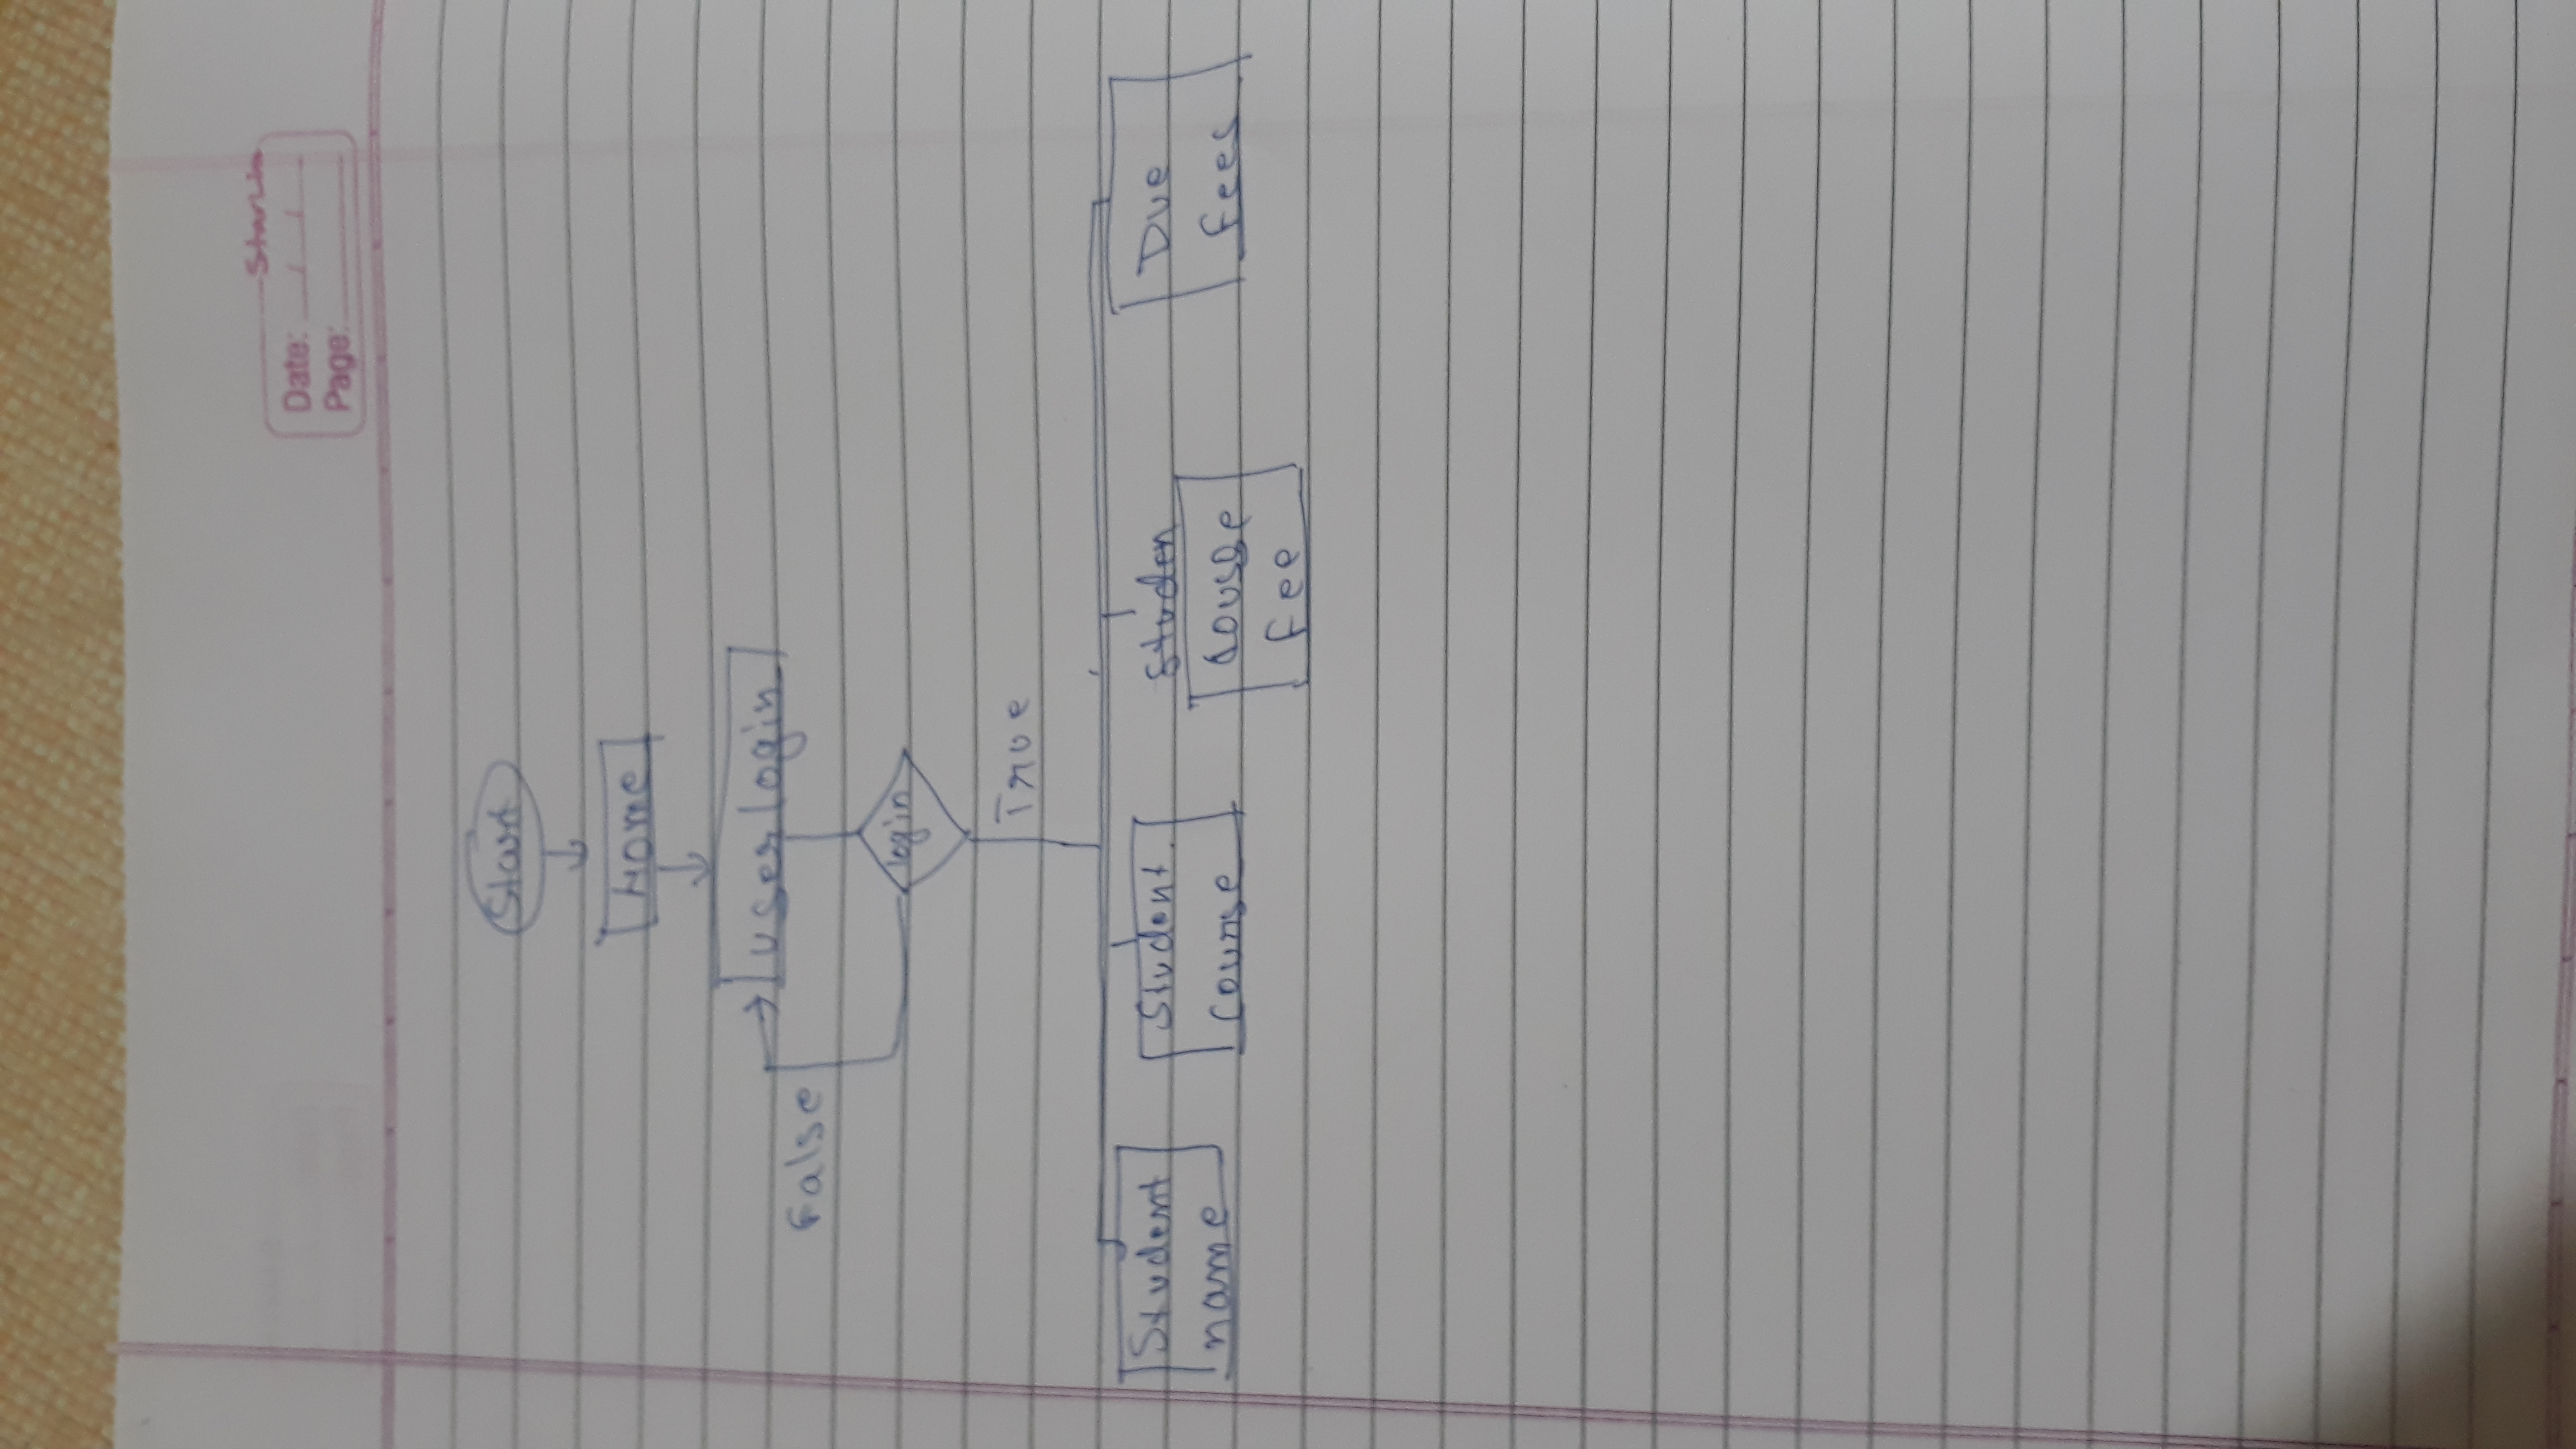 Starlin
Date:
Page:
Start
Home
user login
False
login
True
Student
name
Student
course
Studen
Fee
Due
Fees